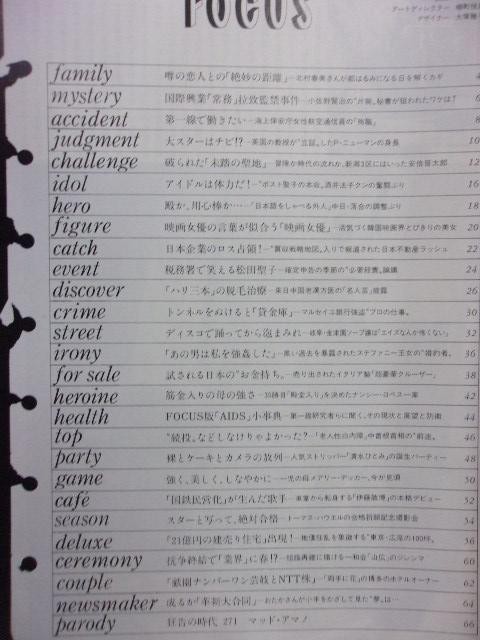 FOCUS
アートディレクター
デザイナー
family 噂の恋人との「絶妙の距離」—北村春美さんが都はるみになる日を解くカギ 4
mystery 国際興業「常務」拉致監禁事件—小佐野賢治の"片腕"秘書が狙われたワケは? 6
accident 第一線で働きたい—海上保安庁女性航空通信員の「殉職」 8
judgment 大スターはチビ!?—英国の教授が"立証"したP・ニューマンの身長 10
challenge 破られた「未踏の聖地」—冒険か時代の流れか、新潟3区にはいった安倍晋太郎 12
idol アイドルは体力だ!—"ポスト聖子の本命"酒井法子クンの奮闘ぶり 16
hero 殿か、用心棒か…—「日本語をしゃべる外人」中日・落合の調整ぶり 18
figure 映画女優の言葉が似合う「映画女優」—活気づく韓国映画界とびきりの美女 20
catch 日本企業のロス占領!—"買収戦略地図"入りで報道された日本不動産ラッシュ 22
event 税務署で笑える松田聖子—確定申告の季節の"必要経費"論議 24
discover 「ハリ三本」の脱毛治療—来日中国老漢方医の「名人芸」披露 26
crime トンネルをぬけると「貸金庫」—マルセイユ銀行強盗"プロの仕事" 30
street ディスコで踊ってから泡まみれ—岐阜・金津園ソープ嬢は「エイズなんか怖くない」 32
irony 「あの男は私を強姦した」—黒い過去を暴露されたステファニー王女の"婚約者" 36
for sale 試される日本の"お金持ち"—売り出されたイタリア製「超豪華クルーザー」 38
heroine 筋金入りの母の強さ 42
health FOCUS版「AIDS」小事典—第一線研究者らに聞く、その現状と展望と防衛 44
top "続投"などしなけりゃよかった?—「老人性白内障」中曽根首相の"前途" 46
party 裸とケーキとカメラの放列—人気ストリッパー「清水ひとみ」の誕生パーティー 48
game 強く、美しく、しなやかに—一児の母メアリー・デッカー、今が見頃 50
café 「国鉄民営化」が生んだ歌手—車掌から転身する「伊藤敏博」の本格デビュー 52
season スターと写って、絶対合格—トーマス・ハウエルの合格祈願記念撮影会 54
deluxe 「21億円の建売り住宅」出現!—地価狂乱を象徴する"東京・広尾の100坪" 56
ceremony 抗争終結で「業界」に春!? 60
couple 「祇園ナンバーワン芸妓とNTT株」—「両手に花」の博多のホテルオーナー 62
newsmaker 成るか「革新大合同」—おたかさんが小手をかざして見た"夢"は… 64
parody 狂告の時代 271 マッド・アマノ 66